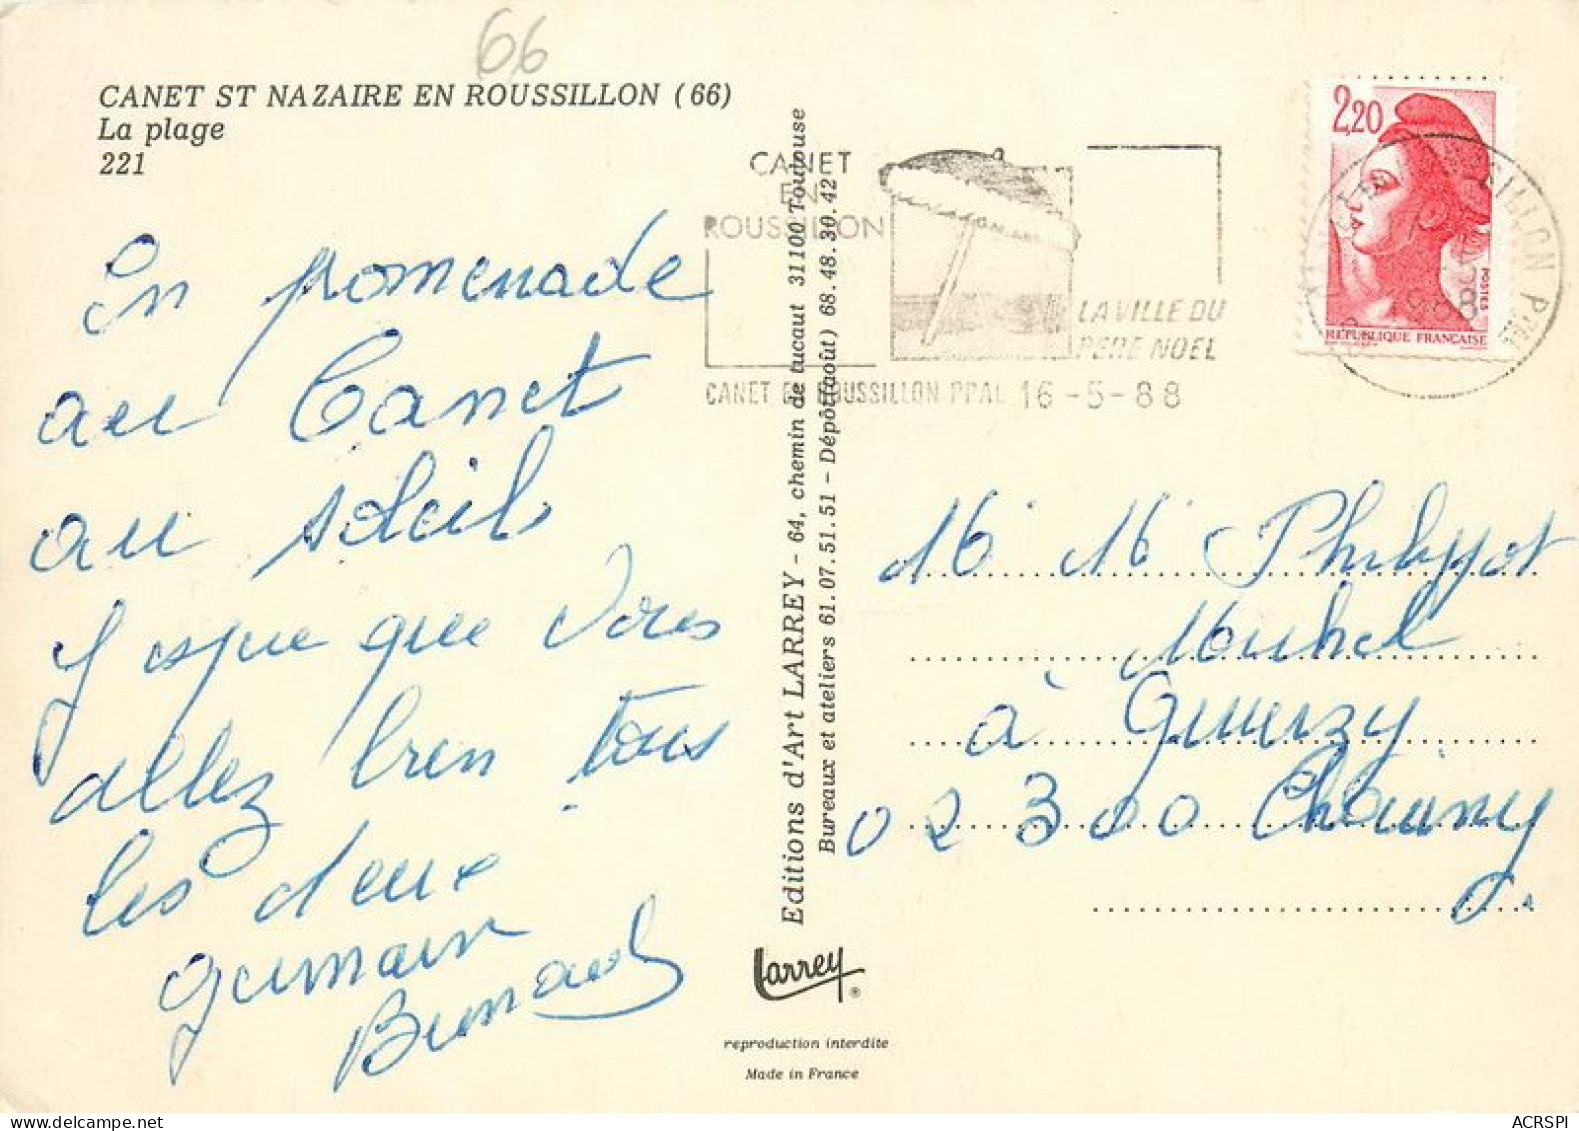 66
CANET ST NAZAIRE EN ROUSSILLON (66)
La plage
221
En promenade
au Canet
au soleil
J espue que vous
allez bien tous
les deux
Germain
Bernard
Editions d'Art LARREY - 64, chemin de tucaut 31100 Toulouse
Bureaux et ateliers 61.07.51.51 - Dépôt (août) 68.48.30.42
Larrey ®
reproduction interdite
Made in France
CANET
EN
ROUSSILLON
LA VILLE DU
PERE NOEL
CANET EN ROUSSILLON PPAL 16-5-88
2,20
POSTES
REPUBLIQUE FRANÇAISE
1988
M M
Michel
à
02300 Chauny
ACRSPI